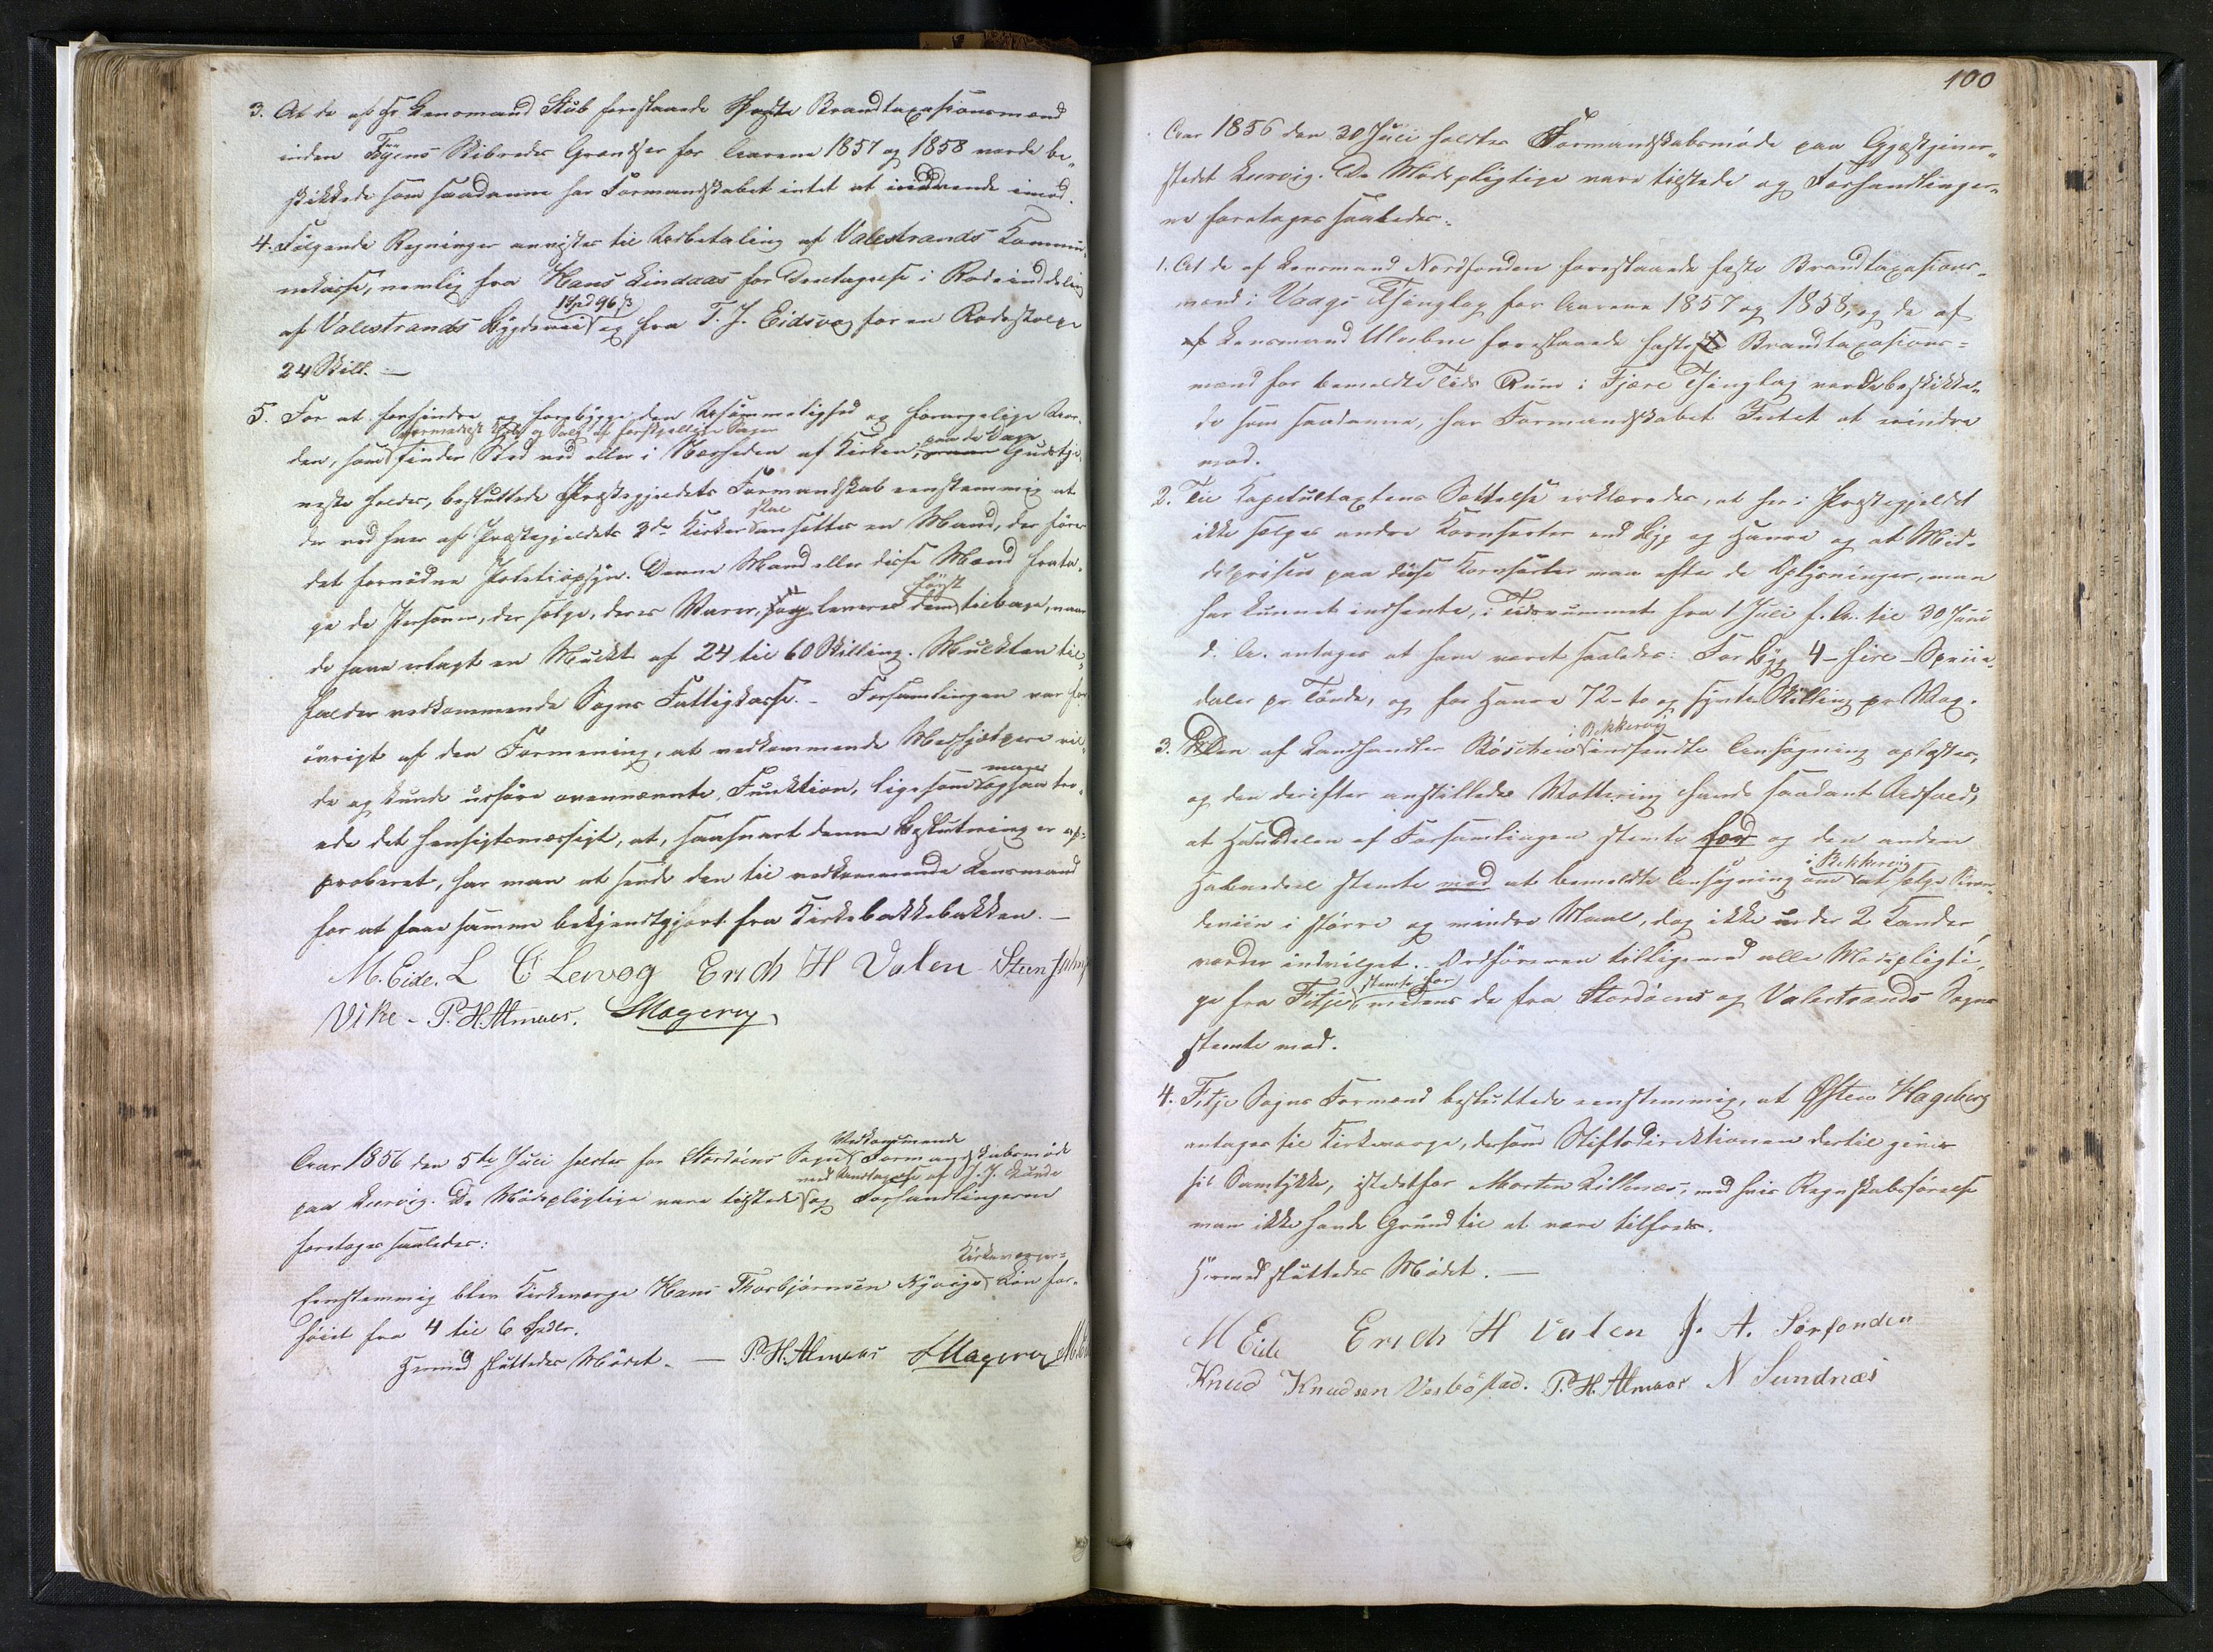 3. At de af Hr Lensmand Stub foreslaaede faste Brandtaxasionsmænd
inden Føyens Skibredes Grændser for Aarene 1857 og 1858 vorde be-
skikkede som saadanne har Formandskabet intet at indvende imod.
4. Følgende Regninger anvistes til Udbetaling af Valestrands Kommu-
nekasse, nemlig fra Hans Lindaas for Deeltagelse i Rodeinddeling
1 Spd 96 ß
af Valestrands Bygdevei og fra T. J. Eidsvog for en Rodestolpe
24 Skill. —
5. For at forhindre og forebygge den Usømmelighed og forargelige Uor-
formedelst Kjøb og Salg af forskjellige Sager
den, som finder Sted ved eller i Nærheden af Kirken, paa de Dage Gudstje-
neste holdes, besluttede Præstegjeldets Formandskab eenstemmig at
skal
der ved hver af Præstegjeldets 3de Kirker ansættes en Mand, der fører
det fornødne Politiopsyn. Denne Mand eller disse Mænd frata-
først
ge de Personer, der sælge, deres Varer, og leveres dem tilbage, naar
de have erlagt en Mulkt af 24 til 60 Skilling. Mulkten til-
falder vedkommende Sogns Fattigkasse. – Forsamlingen var for
øvrigt af den Formening, at vedkommende Medhjælpere vil-
man
de og kunde udføre ovennævnte Funktion, ligesom ogsaa tro-
ede det hensigtsmæssigt, at, saasnart denne Beslutning er ap-
proberet, har man at sende den til vedkommende Lensmand
for at faae samme bekjendtgjort fra Kirkebakkebakken. —
M. Eide. L C Levog Erich H Valen Steen
Vike – P. H. Almaas. Magerøy
Vedkommende
Aar 1856 den 5te Juli holdtes for Stordøens Sogn Formandskabsmøde
med Deeltagelse af J. J. Lunde
paa Lervig. De Mødepligtige vare tilstede og Forhandlingerne
foretoges saaledes:
Kirkeværger-
Eenstemmig blev Kirkeværge Hans Thorbjørnsen Nysvigs Løn for-
høiet fra 4 til 6 Spdlr.
Hermed sluttedes Mødet. — P. H. Almaas Magerøy M. Eide
100
Aar 1856 den 30 Juli holdtes Formandskabsmøde paa Gjæstgiver-
stedet Lervig. De Mødepligtige vare tilstede og Forhandlinger-
ne foretoges saaledes:
1. At de af Lensmand Nordfonden foreslaaede faste Brandtaxasions-
mænd i Vaags Thinglag for Aarene 1857 og 1858, og de af
af Lensmand foreslaaede faste Brandtaxasions-
mænd for bemeldte Tids Rum i Fjære Thinglag vorde beskikke-
de som saadanne, har Formandskabet Intet at erindre
mod.
2. Til Kapitulstaxtens Sættelse erklæredes, at her i Præstegjeldet
ikke sælges andre Kornsorter end Byg og Havre og at Mid-
delprisen paa disse Kornsorter man efter de Oplysninger, man
har kunnet indhente, i Tidsrummet fra 1 Juli f. A. til 30 Juni
d. A. antages at have været saaledes: For Byg 4 – fire – Specie-
daler pr Tønde, og for Havre 72 – to og syvti Skilling pr Vog.
i Bekkervig
3. Den af Landhandler Røscher indsendte Ansøgning oplæstes,
og den derefter anstillede Vottering havde saadant Udfald,
at Halvdelen af Forsamlingen stemte for og den anden
i Bekkervig
Halvdeel stemte mod at bemeldte Ansøgning om at sælge Bræn-
deviin i større og mindre Maal, dog ikke under 2 Kander,
vorder indvilget. Ordføreren tilligemed alle Mødepligti-
stemte for
ge fra Fitje, medens de fra Stordøens og Valestrands Sogne
stemte mod.
4. Fitje Sogns Formænd besluttede eenstemmig, at Østen Hageberg
antages til Kirkeværge, dersom Stiftsdirektionen dertil giver
sit Samtykke, istedetfor Morten Rillenæs, med hvis Regnskabsførelse
man ikke havde Grund til at være tilfreds.
Hermed sluttedes Mødet. —
M Eide Erich H Valen J. A. Sørfonden
Knud Knudsen Vestbøstad. P. H. Almaas N Sundnæs